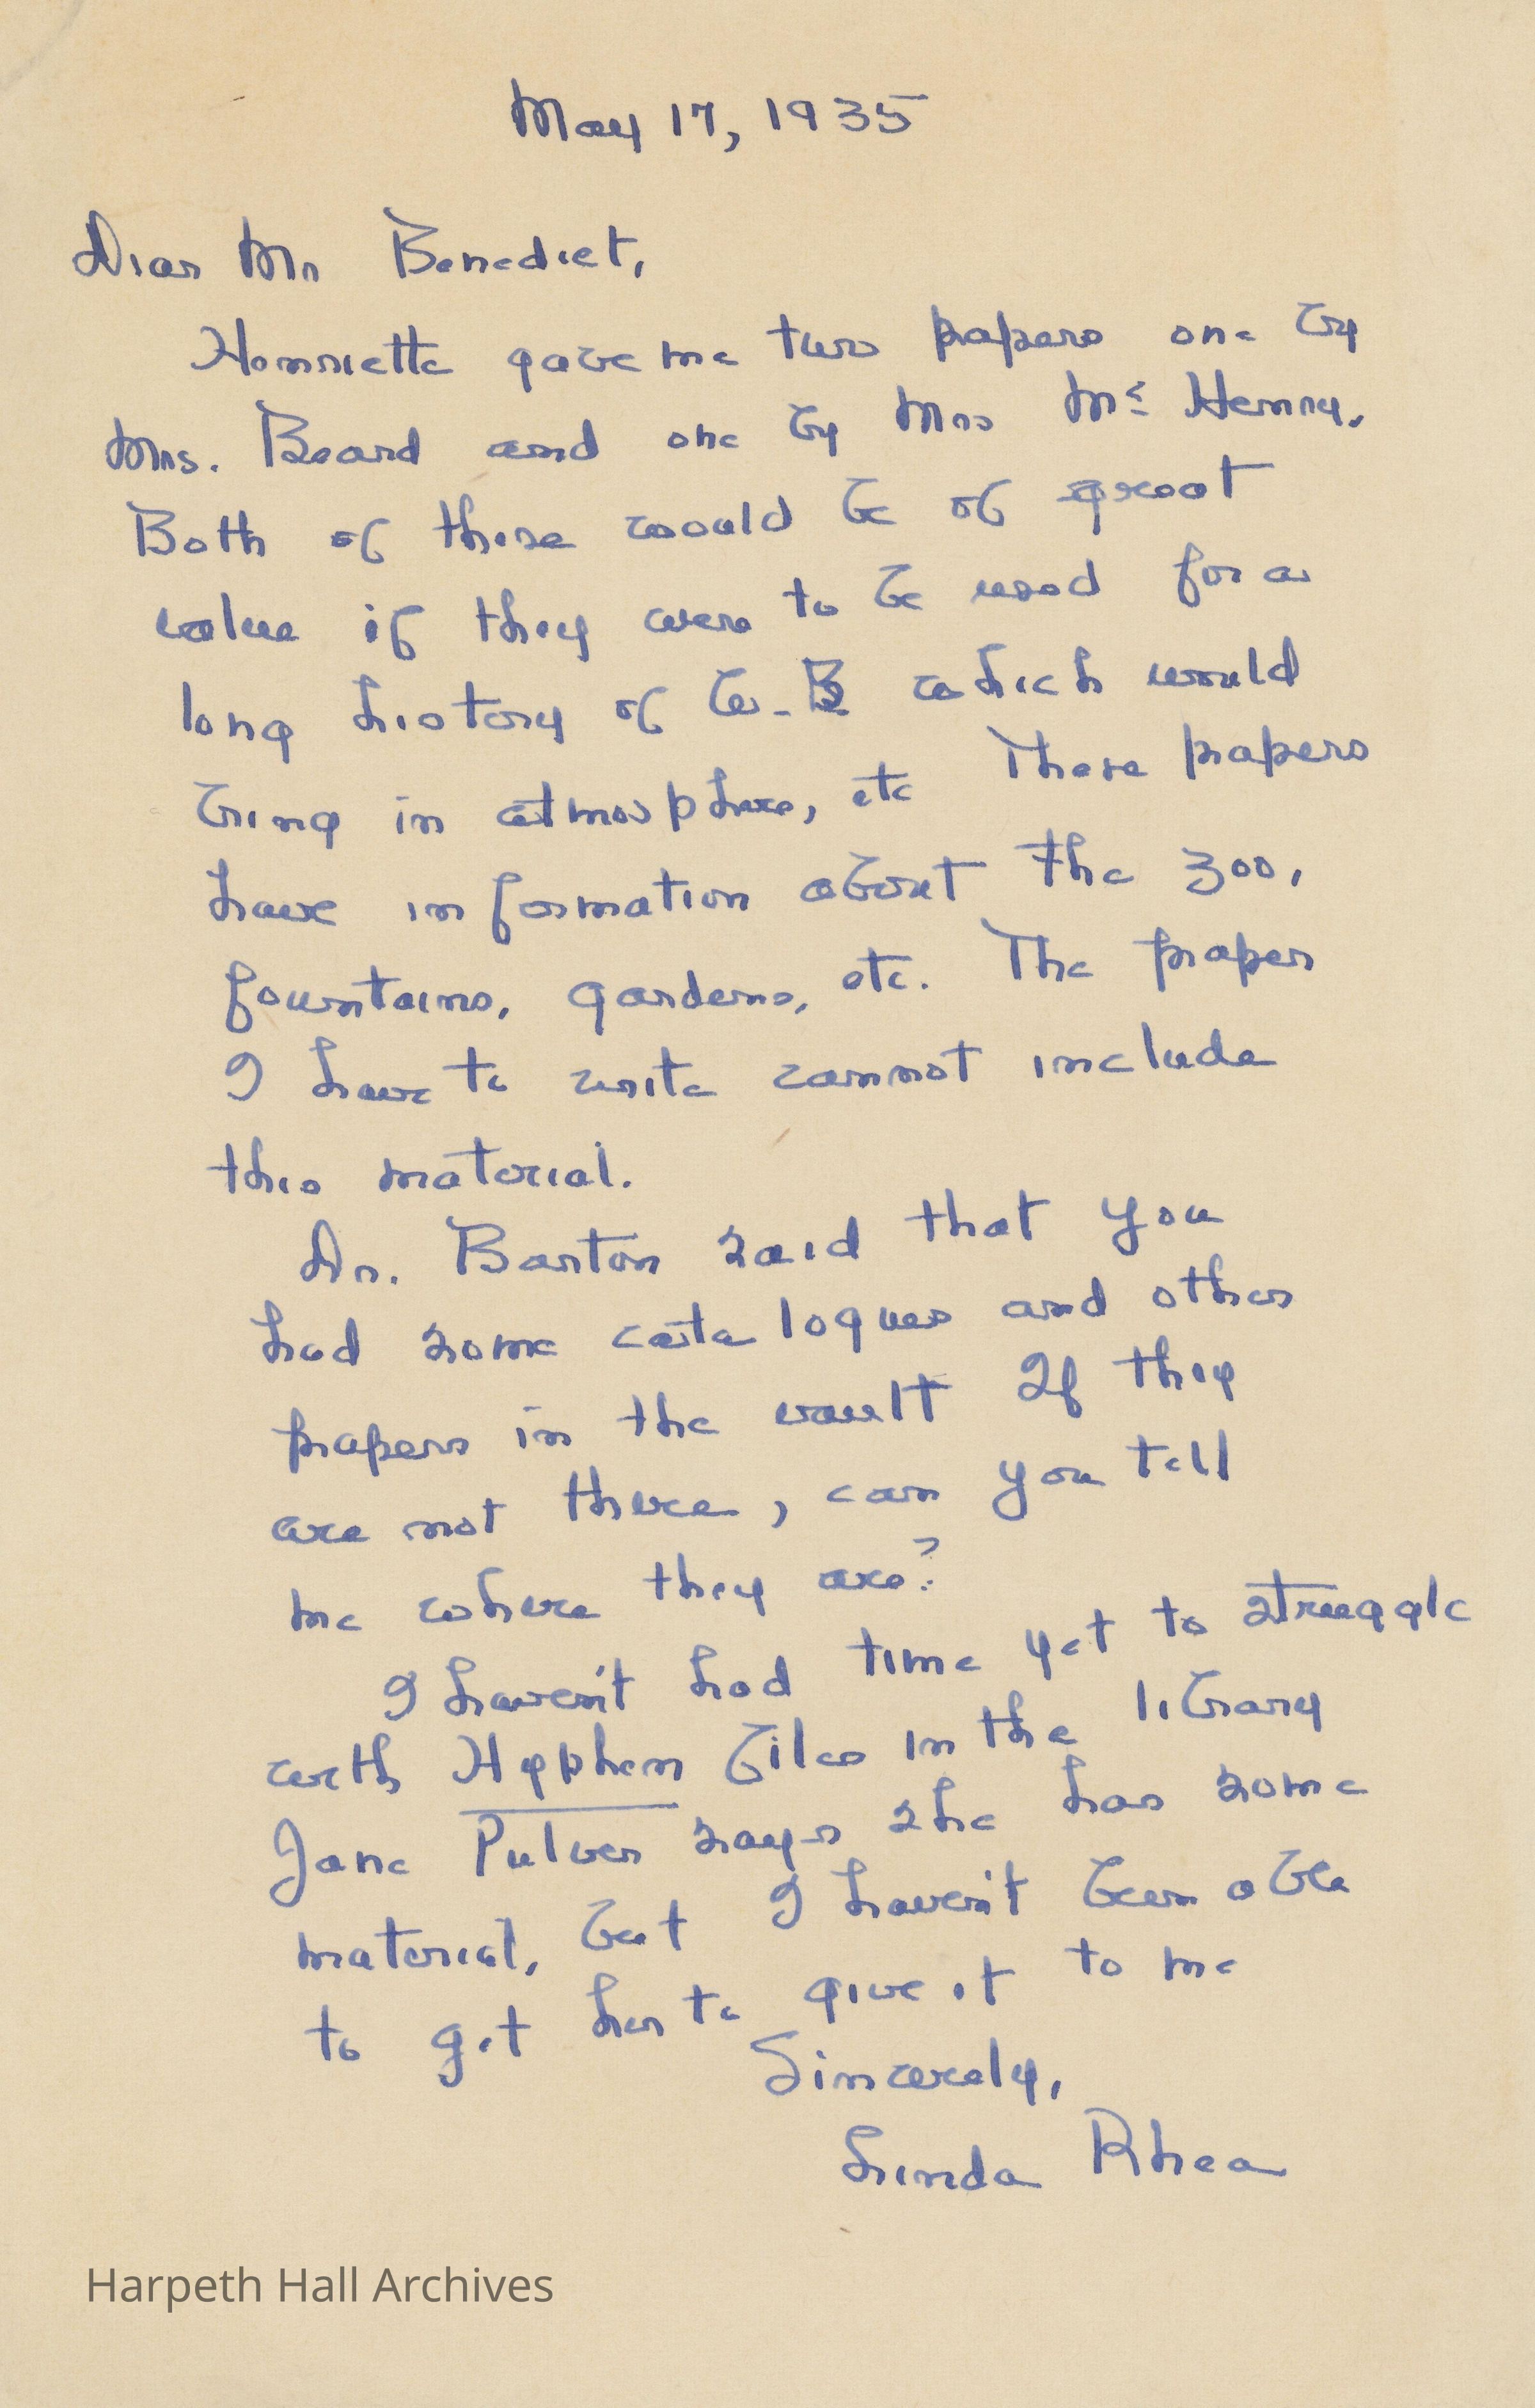 May 17, 1935
Dear Mr Benedict,
Henriette gave me two papers one by
Mrs. Beard and one by Mrs McHenry.
Both of these would be of great
value if they were to be used for a
long history of W-B which would
bring in atmosphere, etc These papers
have information about the 300,
fountains, gardens, etc. The paper
I have to write cannot include
this material.
Dr. Barton said that you
had some catalogues and other
papers in the vault If they
are not there, can you tell
me where they are?
I haven't had time yet to struggle
with Hyphen files in the library
Jane Pulver says she has some
material, but I haven't been able
to get her to give it to me
Sincerely,
Linda Rhea
Harpeth Hall Archives